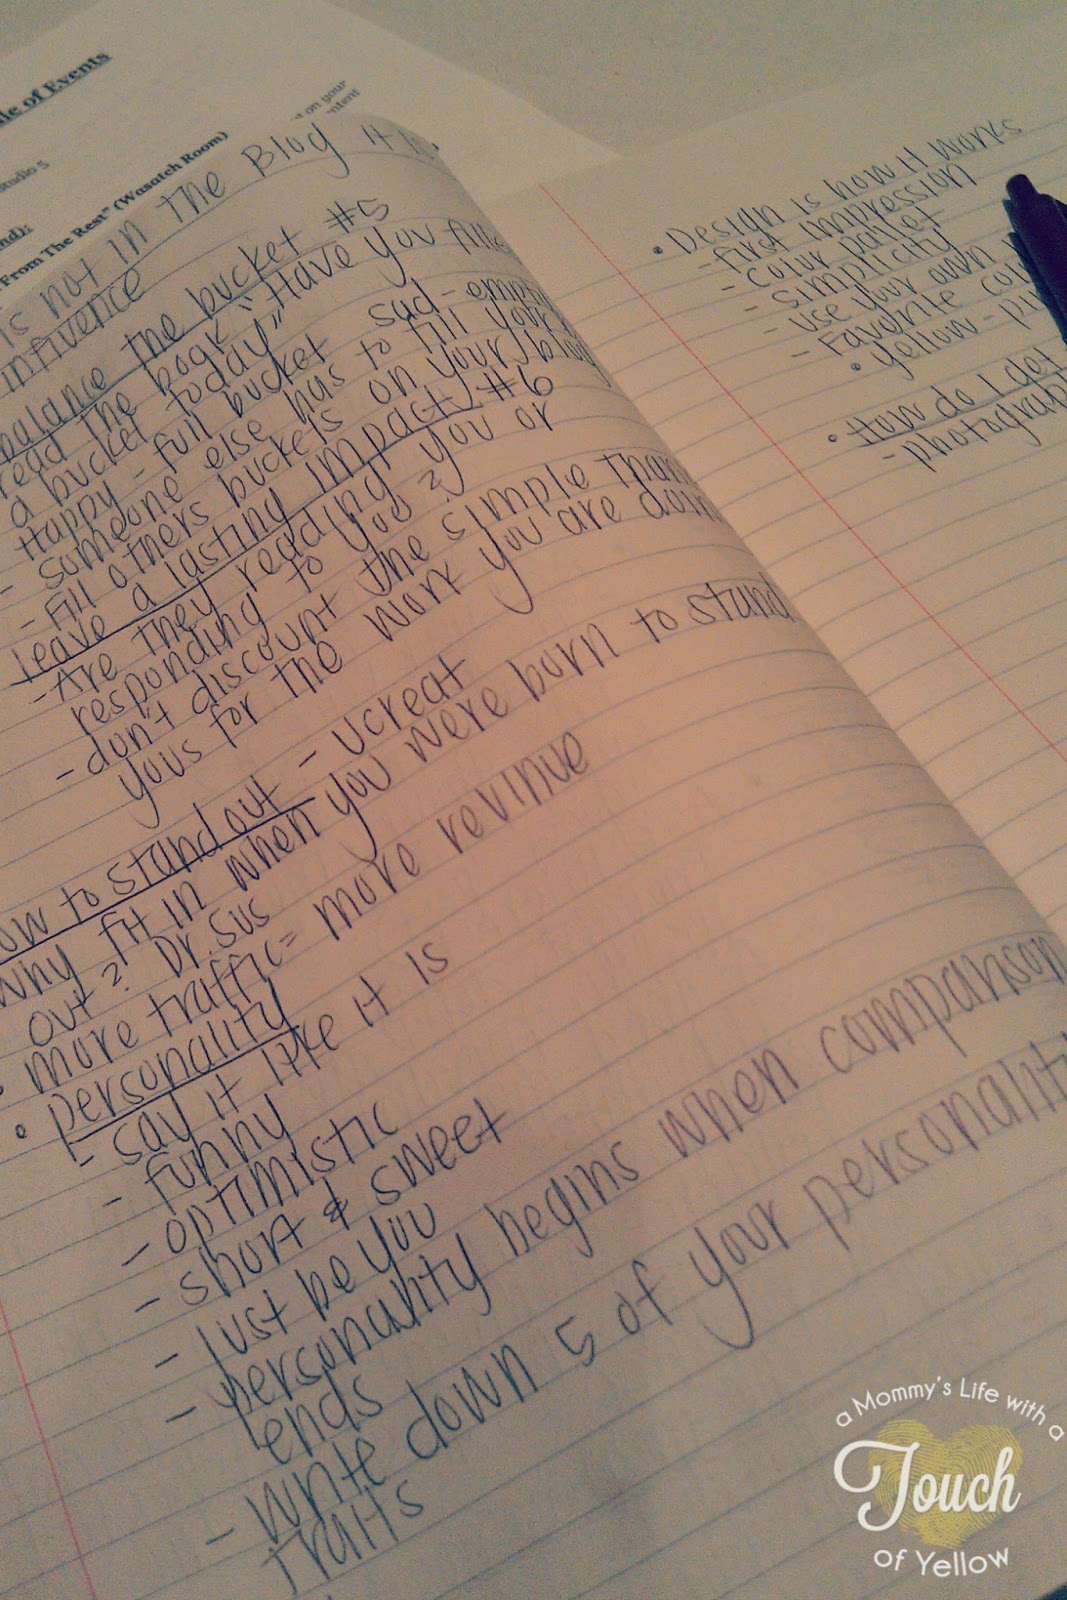 le of Events
Studio 5
and):
From The Rest" (Wasatch Room)
on your
ntent
is not in the Blog it
infiuence
balance the bucket #5
read the book "Have you fille
a bucket today"
Happy - full bucket sad - empty
- someone else has to fill your
- Fill others buckets on your blog
leave a lasting impact #6
- Are they reading you or
responding to you?
- don't discount the simple than
yous for the work you are doin
ow to stand out - ucreat
Why fit in when you were born to stand
out? Dr. Sus
• more traffic = more revinue
• personality
- say it like it is
- funny
- optimistic
- short & sweet
- Just be you
- personality begins when comparison
ends
- write down 5 of your personalit
traits
• Design is how it works
- first impression
- color pallet
- simplicity
- use your own
- Favorite col
• yellow - pi
• How do I get
- photograp
a Mommy's Life with a
Touch
of Yellow